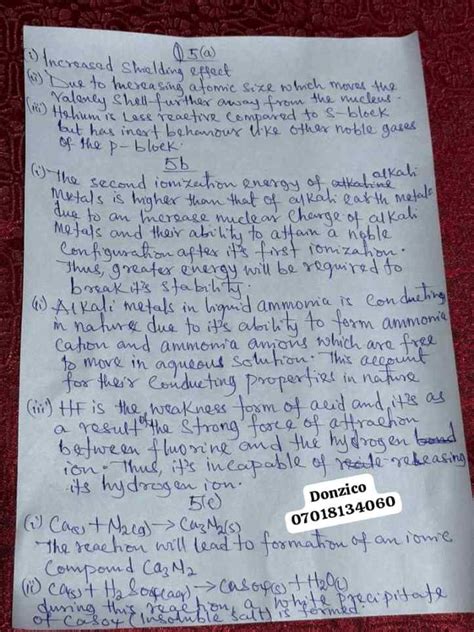 Q5(a)
i) Increased Shielding effect
(ii) Due to Increasing atomic size which moves the
Valency Shell further away from the nucleus.
(iii) Helium is Less reactive Compared to S-block
but has inert behaviour like other noble gases
of the p-block.
5b
(i) The second ionization energy of alkaline alkali
Metals is higher than that of alkali earth metals
due to an Increase nuclear Charge of alkali
Metals and their ability to attain a noble
Configuration after it's first ionization.
Thus, greater energy will be required to
break it's stability.
(ii) Alkali metals in liquid ammonia is Conducting
in nature due to it's ability to form ammonia
Cation and ammonia anions which are free
to move in aqueous solution. This account
for their Conducting properties in nature
(iii) HF is the weakness form of acid and it's as
a result of the strong force of attraction
between fluorine and the hydrogen bond
ion. Thus, it's incapable of releasing
its hydrogen ion.
5(c)
(i) Ca(s) + N2(g) → Ca3N2(s)
The reaction will lead to formation of an ionic
Compound Ca3N2
(ii) Ca(s) + H2SO4(aq) → CaSO4(s) + H2O(l)
during this reaction, a white precipitate
of CaSO4 (Insoluble salt) is formed.
Donzico
07018134060